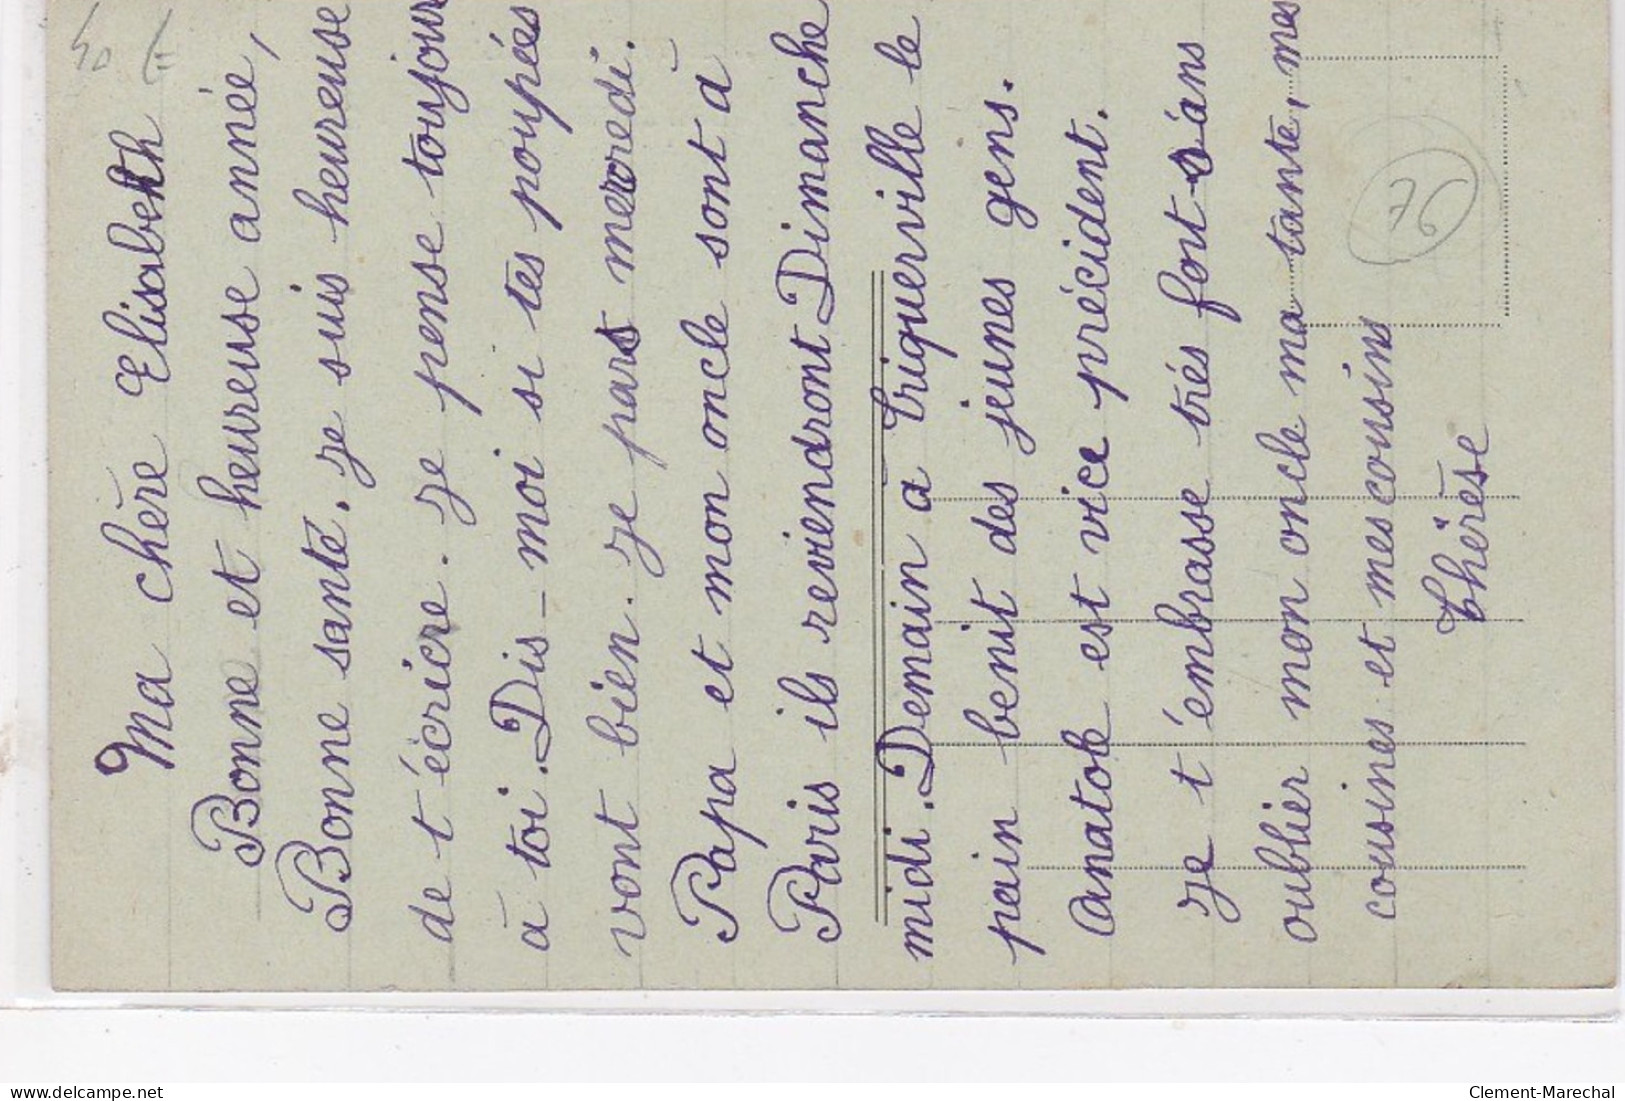 40 E
Ma chère Elisabeth
Bonne et heureuse année,
Bonne santé. je suis heureuse
de t'écrire. je pense toujour
à toi. Dis-moi si tes poupées
vont bien. je pars mercredi.
Papa et mon oncle sont à
Paris ils reviendront Dimanche
midi. Demain a Triquerville le
pain benit des jeunes gens.
Anatole est vice précident.
je t'embrasse trés fort sans
oublier mon oncle ma tante, mes
cousines et mes cousins
Thérèse
76
www.delcampe.net
Clement-Marechal